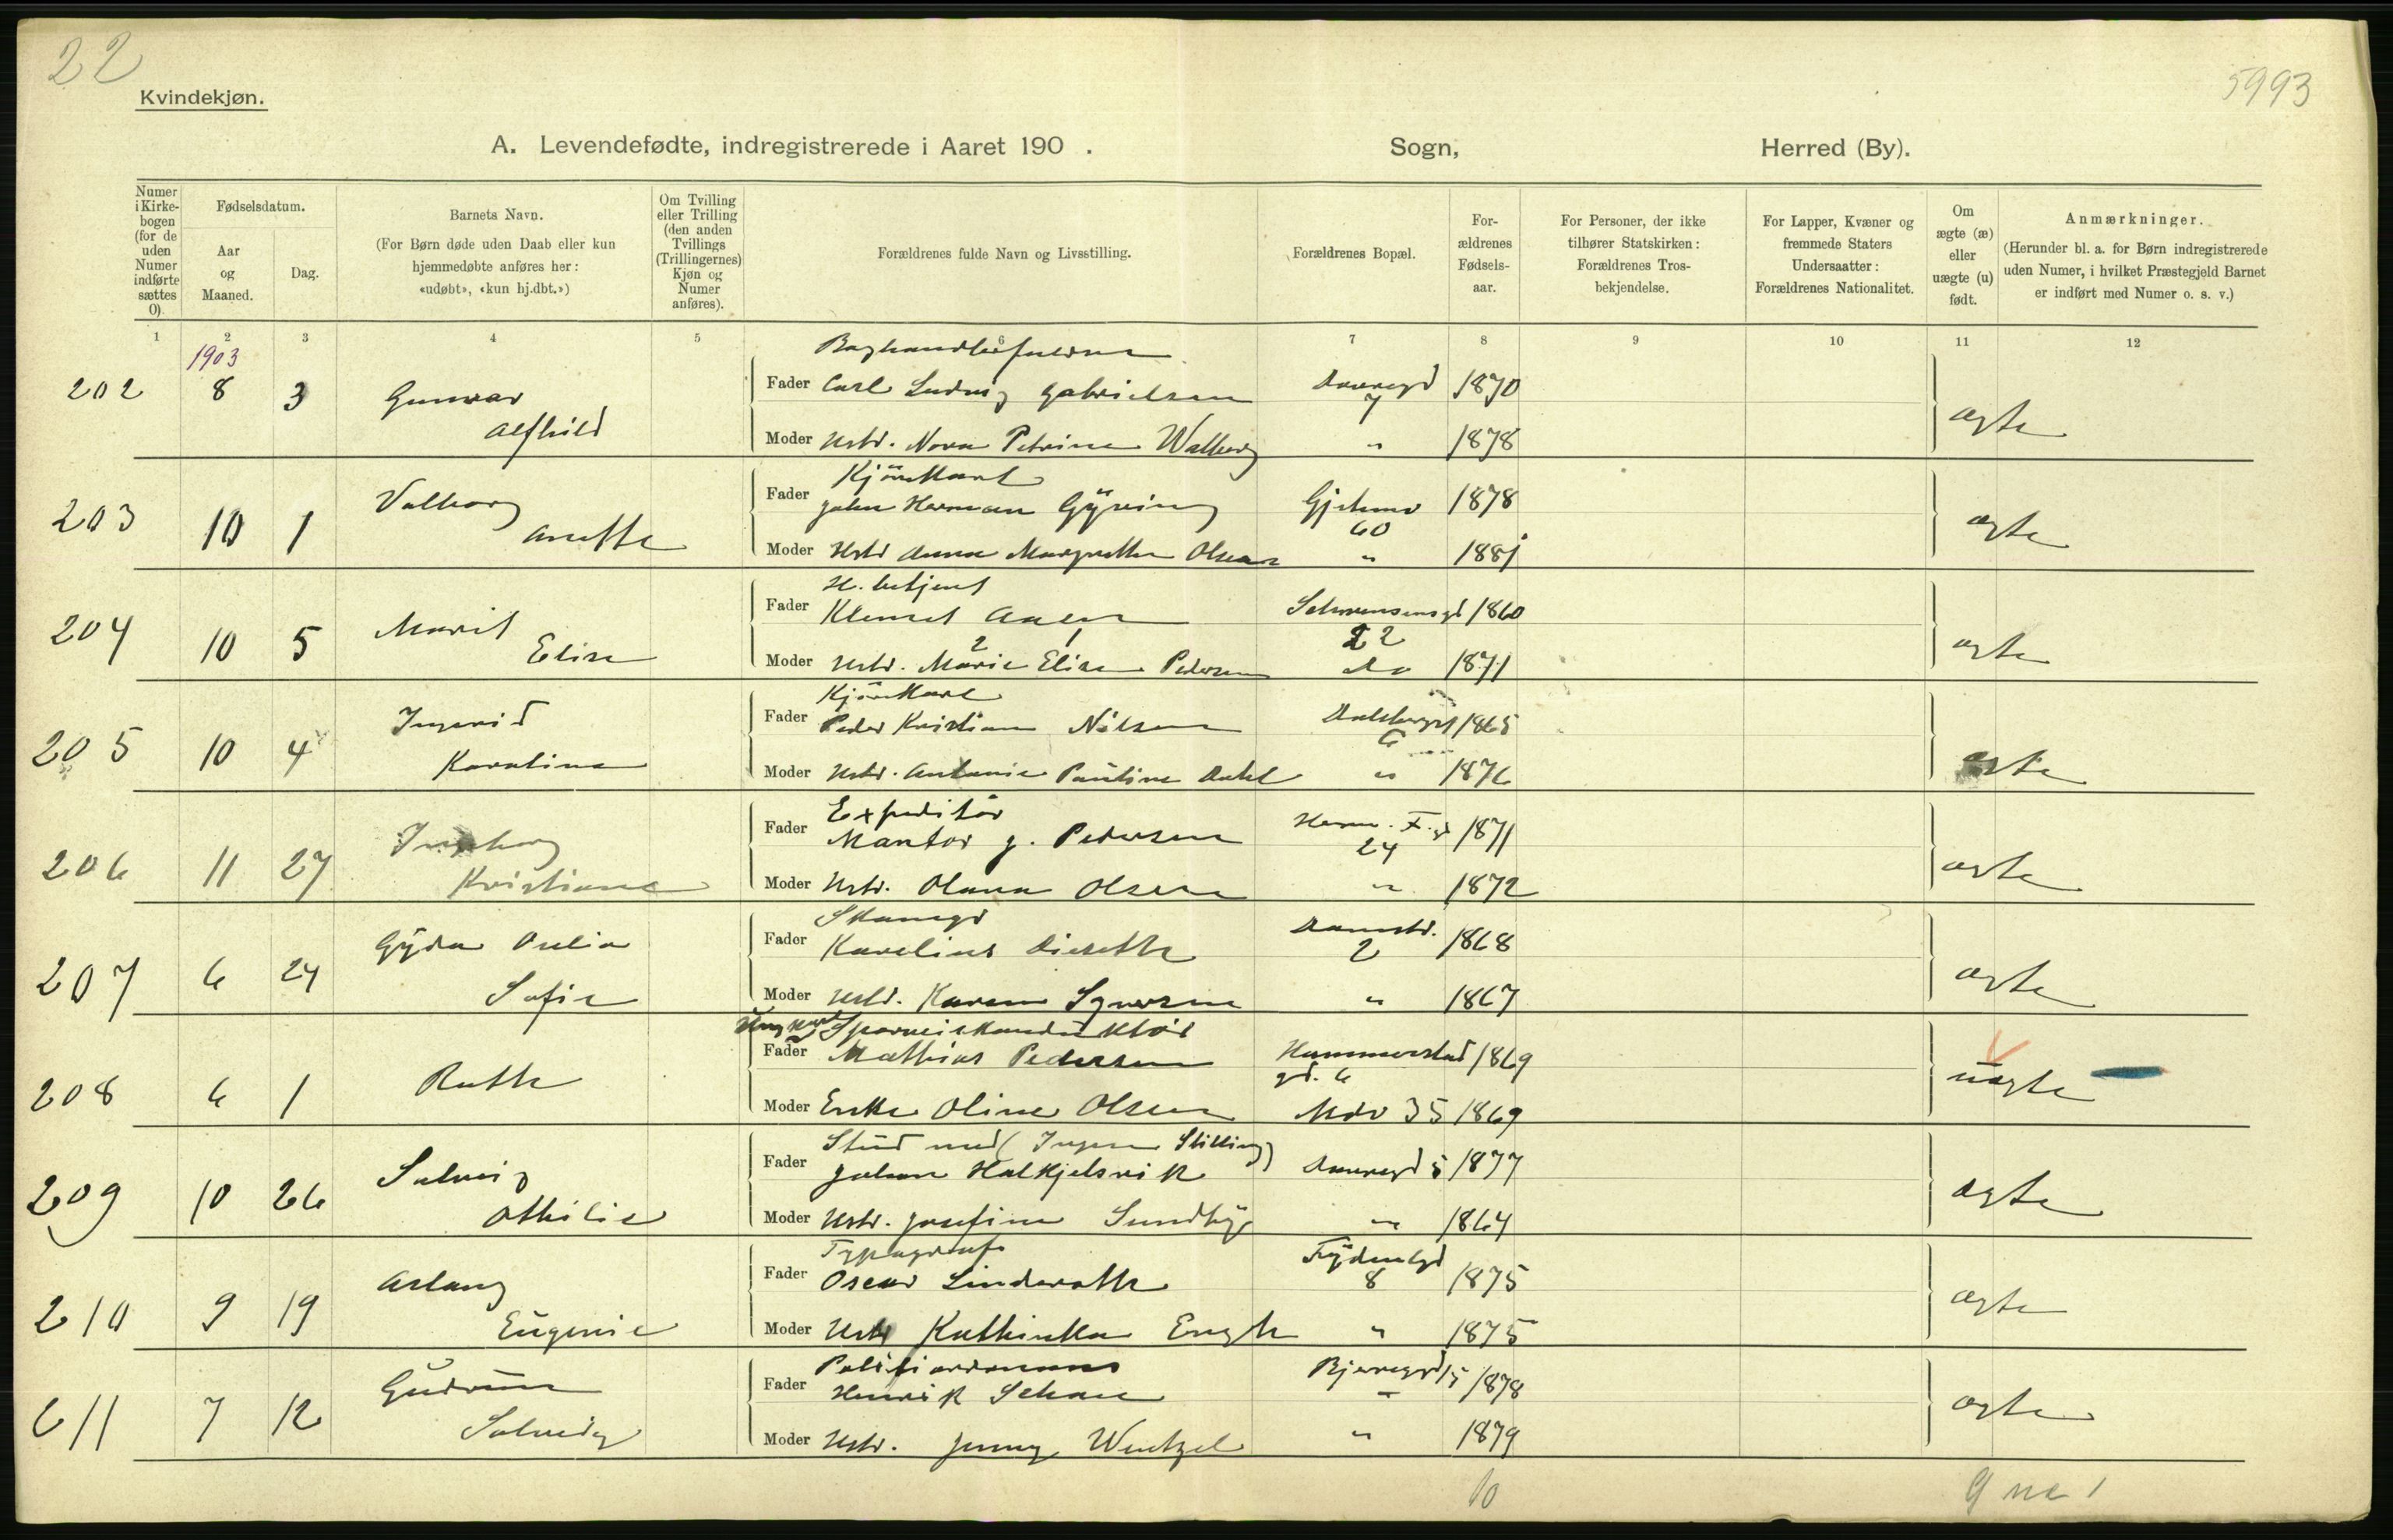 22
5993
Kvindekjøn.
A. Levendefødte, indregistrerede i Aaret 190 . Sogn, Herred (By).
Numer i Kirkebogen (for de uden Numer indførte sættes 0).
Fødselsdatum.
Aar og Maaned.
Dag.
Barnets Navn.
(For Børn døde uden Daab eller kun
hjemmedøbte anføres her:
«udøbt», «kun hj.dbt.»)
Om Tvilling
eller Trilling
(den anden
Tvillings
(Trillingernes)
Kjøn og
Numer
anføres).
Forældrenes fulde Navn og Livsstilling.
Forældrenes Bopæl.
For-
ældrenes
Fødsels-
aar.
For Personer, der ikke
tilhører Statskirken:
Forældrenes Tros-
bekjendelse.
For Lapper, Kvæner og
fremmede Staters
Undersaatter:
Forældrenes Nationalitet.
Om
ægte (æ)
eller
uægte (u)
født.
Anmærkninger.
(Herunder bl. a. for Børn indregistrerede
uden Numer, i hvilket Præstegjeld Barnet
er indført med Numer o. s. v.)
1 2 3 4 5 6 7 8 9 10 11 12
1903
202 8 3 Gunvar Alfhild
Fader Carl Ludvig Gabrielsen 7 1870
Moder Hstr. Nora Petrine Walberg " 1878
ægte
203 10 1 Valborg Anette
Kjørekarl
Fader Johan Herman Gÿring 60 1878
Moder Hstr Anna Margrethe Olsen " 1881
ægte
204 10 5 Marit Elise
H. betjent
Fader Klemet Aasen Schwensensgd 22 1860
2 1
Moder Hstr. Marie Elise Pedersen Do 1871
ægte
205 10 4 Ingerid Karoline
Kjørekarl
Fader Peder Kristian Nilsen Dalsbergst 6 1865
Moder Hstr. Antonie Pauline Dahl " 1876
ægte
206 11 27 Ingeborg Kristiane
Expeditör
Fader Mantor J. Pedersen Herm. F. g 24 1871
Moder Hstr. Olava Olsen " 1872
ægte
207 6 24 Gÿda Sofie
Fader Karelius Dieseth Damstr. 2 1868
Moder Hstr. Karen " 1867
ægte
208 6 1 Ruth
Ungkarl Sporveiskonduktör
Fader Mathias Pedersen Hammerstad gd. 6 1869
Moder Enke Oline Olsen 35 1869
uægte
209 10 26 Solveig Othilie
Stud med (Ingen Stilling)
Fader Johan Halkjelsvik 5 1877
Moder Hstr. Josefine Sundbÿe " 1864
ægte
210 9 19 Aslaug Eugenie
Typograf
Fader Oscar Linderoth Frÿdenlgd 8 1875
Moder Hstr Kathinka Engh " 1875
ægte
211 7 12 Gudrun Solveig
Fader Henrik Schou Bjerregd 15 1878
Moder Hstr. Jenny Wentzel " 1879
ægte
10
9 uæ 1